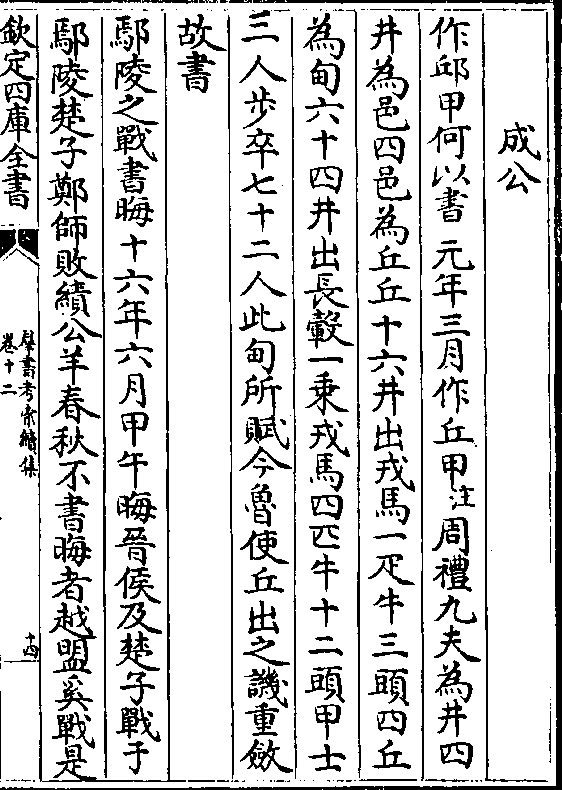 成公
作邱甲何以書 元年三月作丘甲注周禮九夫為井四
井為邑四邑為丘丘十六井出戎馬一疋牛三頭四丘
為甸六十四井出長轂一乘戎馬四匹牛十二頭甲士
三人步卒七十二人此甸所賦今魯使丘出之譏重斂
故書
鄢陵之戰書晦十六年六月甲午晦晉侯及楚子戰于
鄢陵楚子鄭師敗績公羊春秋不書晦者越盟奚戰是
欽定四庫全書
羣書考索續集
卷十二
十四